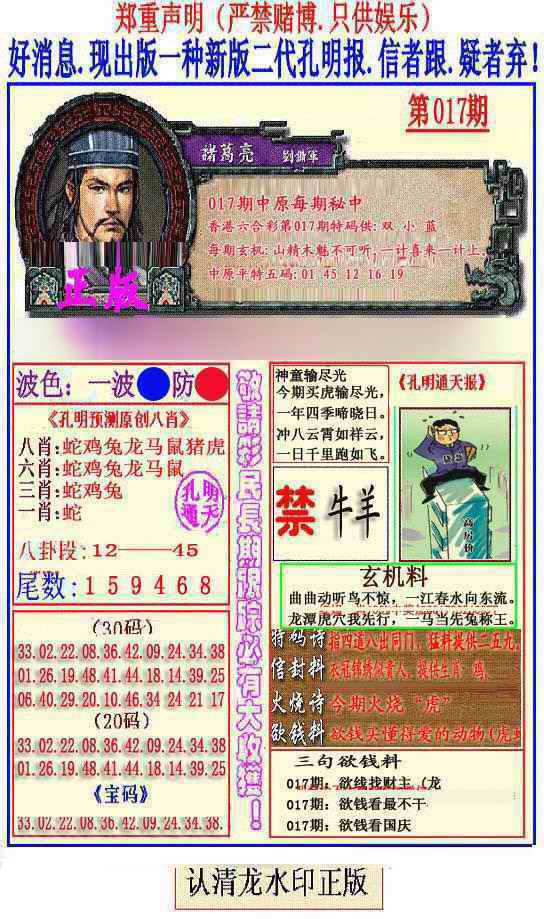 郑重声明（严禁赌博.只供娱乐）
好消息.现出版一种新版二代孔明报.信者跟.疑者弃！
第017期
諸葛亮
017期中原每期秘中
香港六合彩第017期特码供: 双 小 蓝
每期玄机: 山精木魅不可听, 一计喜来一计上.
中原平特五码: 01 45 12 16 19
正版
波色：一波 防
《孔明预测原创八肖》
八肖:蛇鸡兔龙马鼠猪虎
六肖:蛇鸡兔龙马鼠
三肖:蛇鸡兔
一肖:蛇
孔明
通天
八卦段: 12——45
尾数: 1 5 9 4 6 8
(30码)
33.02.22.08.36.42.09.24.34.38
01.26.19.48.41.44.18.14.39.25
06.40.29.20.10.46.34 24 21 17
(20码)
33.02.22.08.36.42.09.24.34.38
01.26.19.48.41.44.18.14.39.25
《宝码》
33.02.22.08.36.42.09.24.34.38.
敬請彩民長期跟踪必有大收獲！
神童输尽光
今期买虎输尽光,
一年四季啼晓日。
冲八云霄如祥云,
一日千里跑如飞。
《孔明通天报》
禁 牛羊
高房价
玄机料
曲曲动听鸟不惊，一江春水向东流。
龙潭虎穴我先行，一马当先兔称王。
特码诗 指四道入出同门, 猛料提供二五九
信封料 衣冠锦绣似贵人, 提供生肖: 鸡.
火烧诗 今期火烧“虎”
欲钱料 欲钱买懂得爱的动物(虎
三句欲钱料
017期: 欲线找财主（龙
017期: 欲钱看最不干
017期: 欲钱看国庆
认清龙水印正版